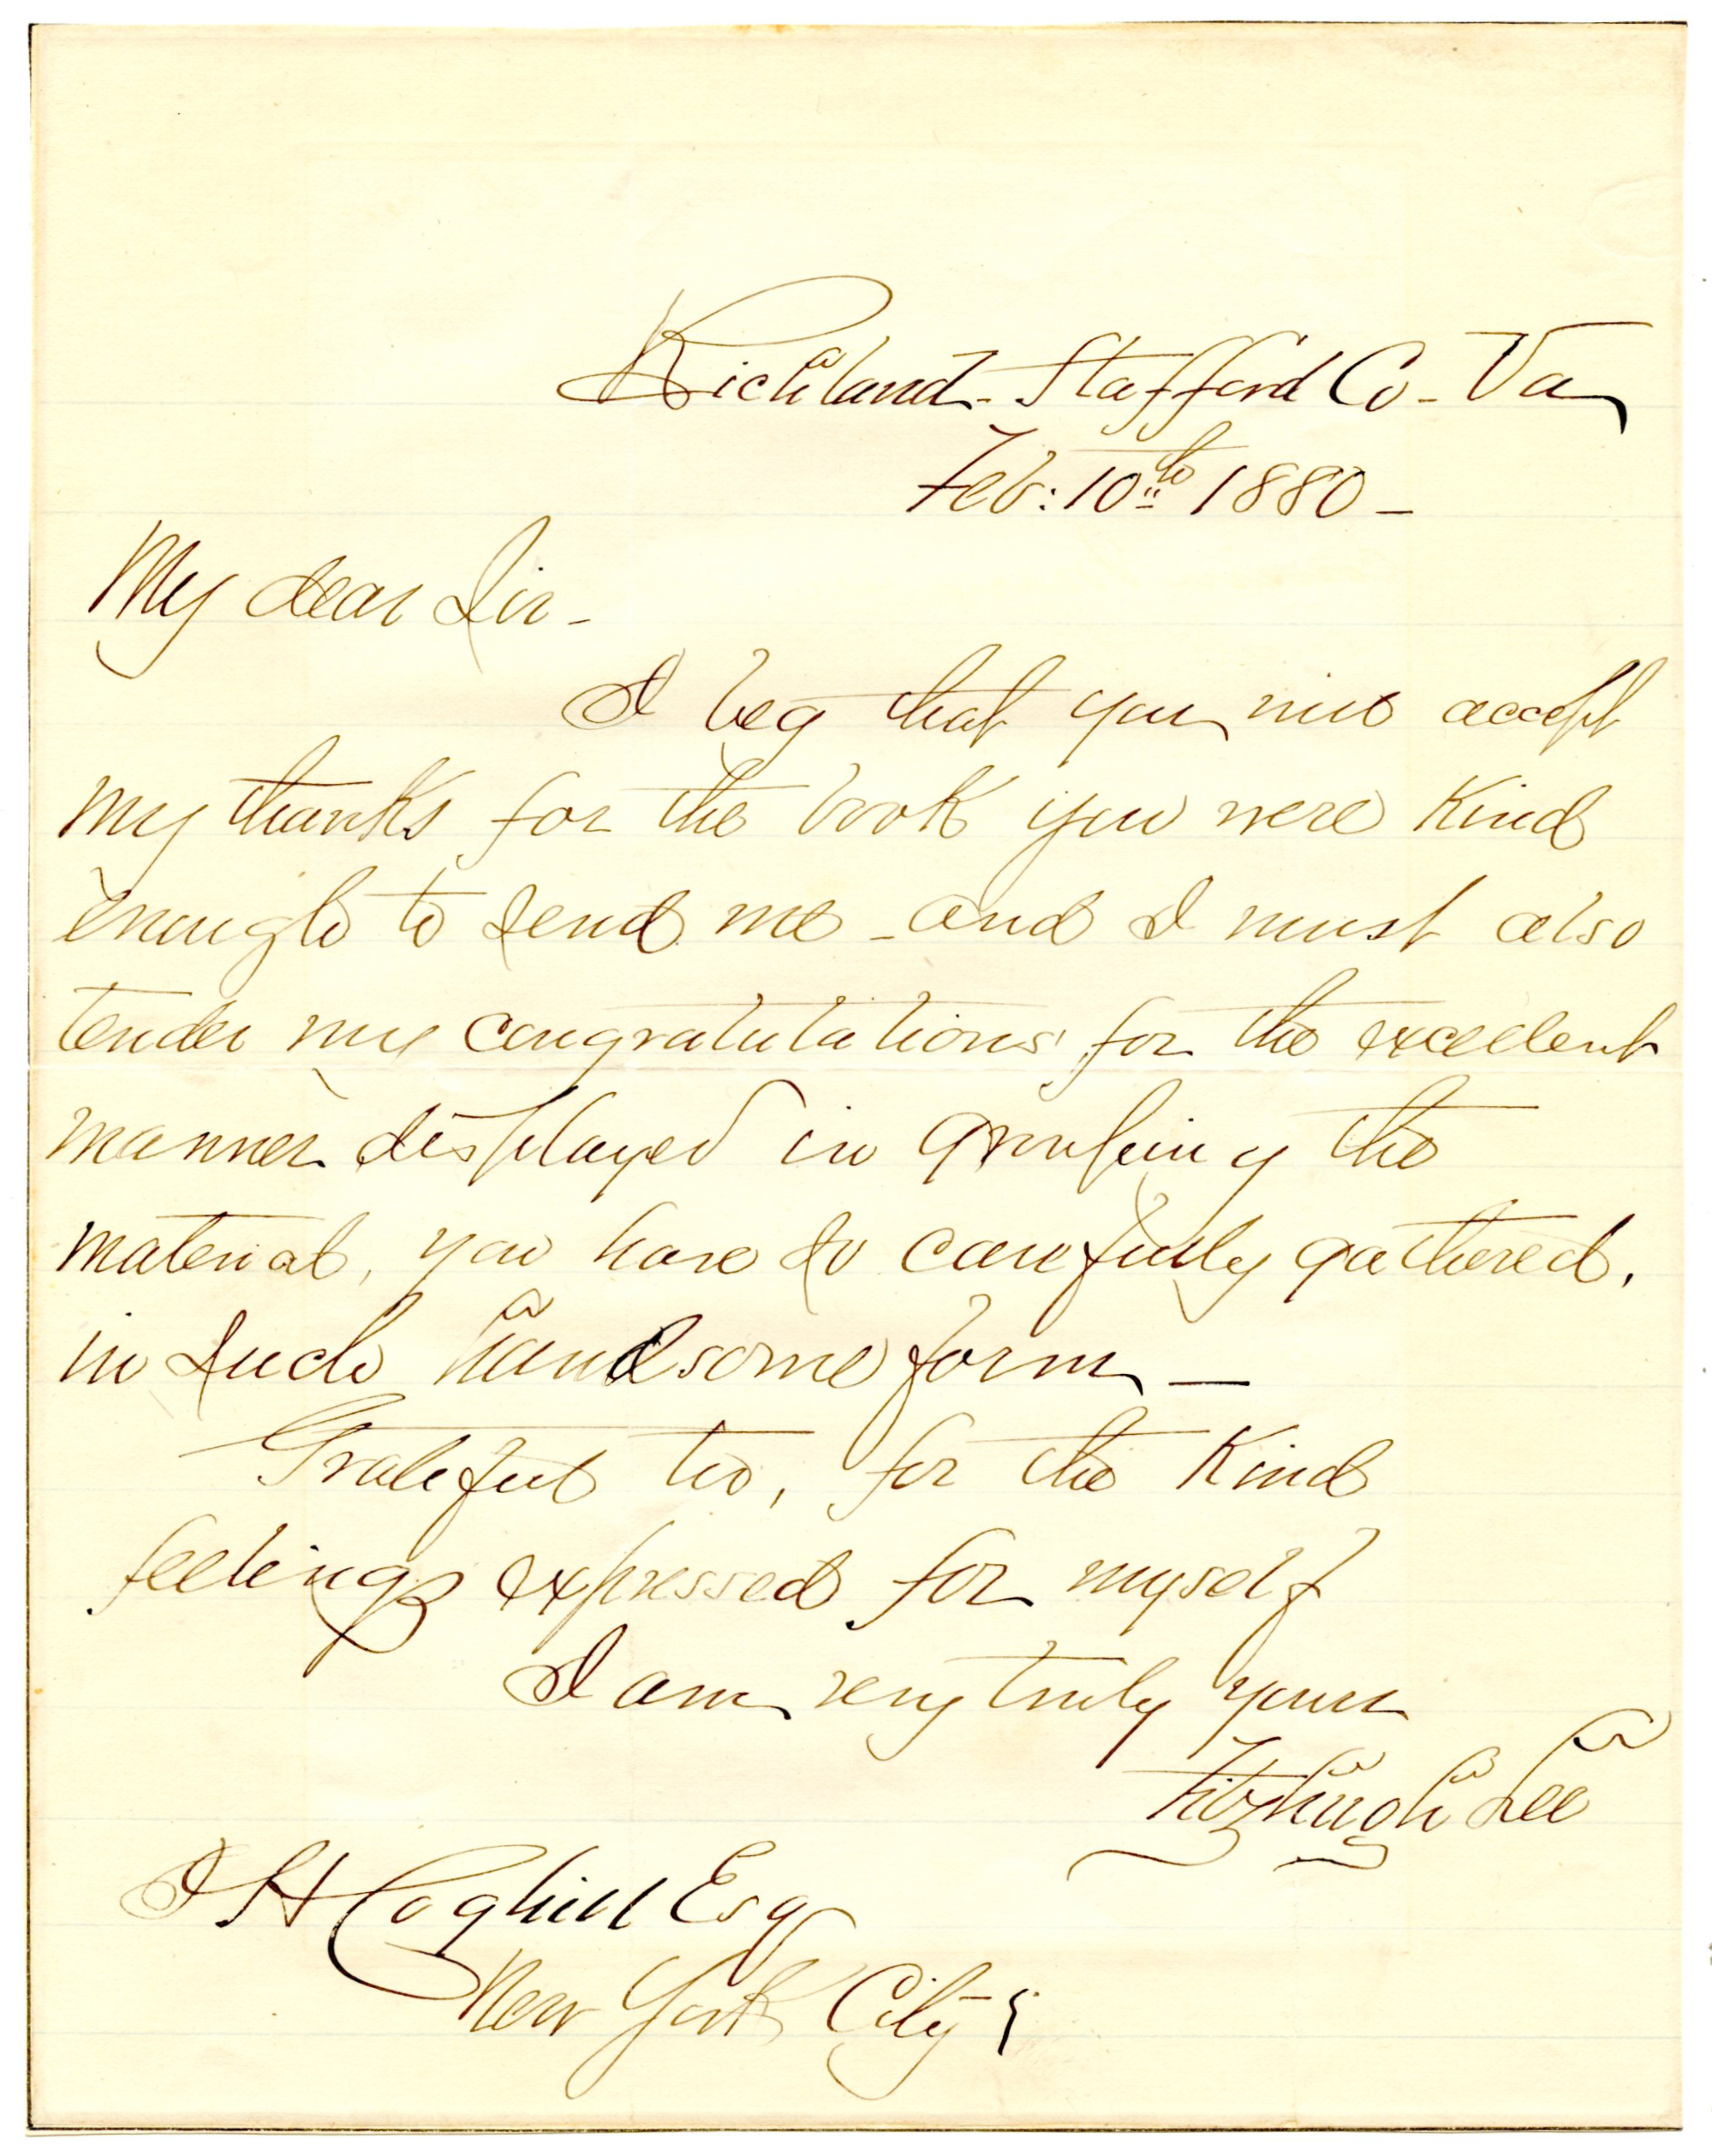 Richland - Stafford Co - Va
Feb: 10th 1880 -
My dear Sir -
I beg that you will accept
my thanks for the book you were kind
enough to send me - and I must also
tender my congratulations for the excellent
manner displayed in grouping the
material, you have so carefully gathered,
in such handsome form -
Grateful too, for the kind
feelings expressed for myself
I am very truly yours
Fitzhugh Lee
J H Coghill Esq
New York City